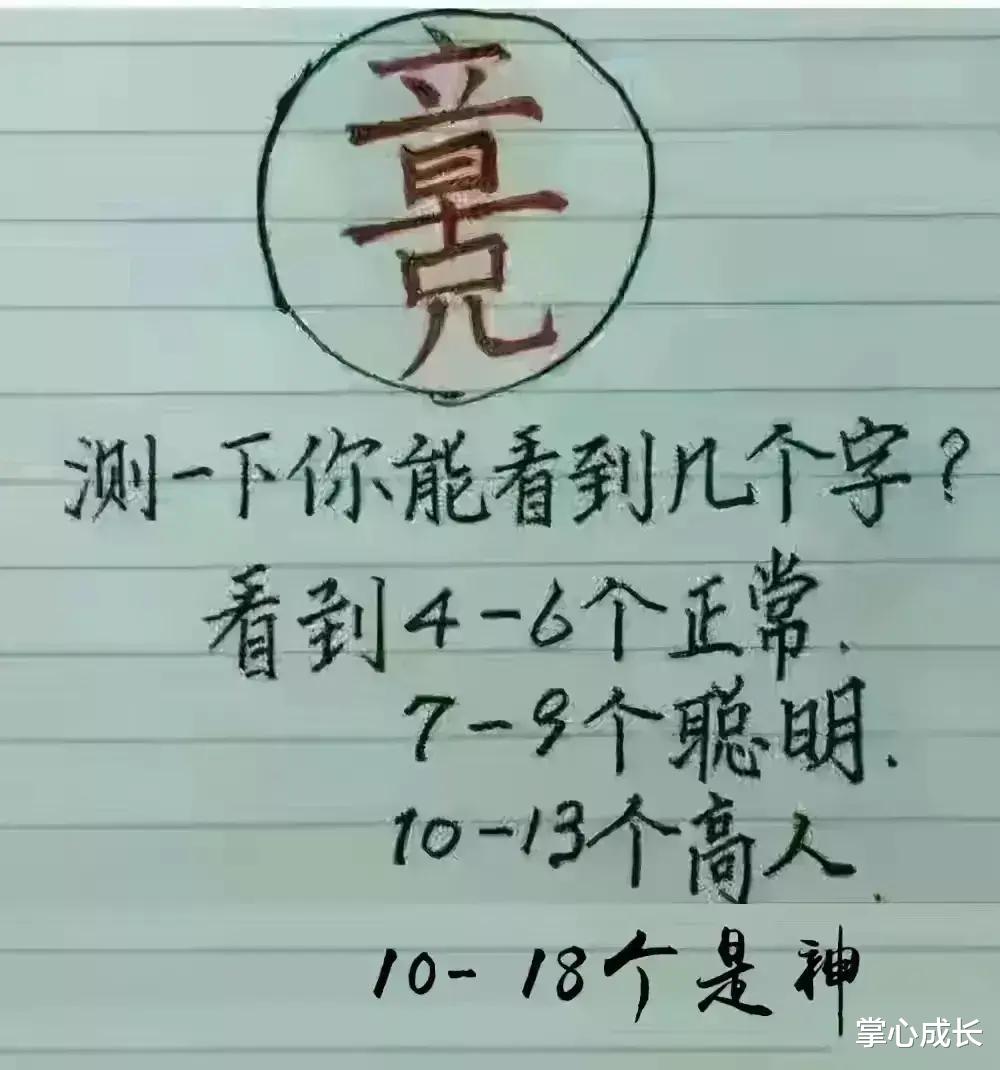 测一下你能看到几个字?
看到4-6个正常.
7-9个聪明.
10-13个高人.
10-18个是神
掌心成长